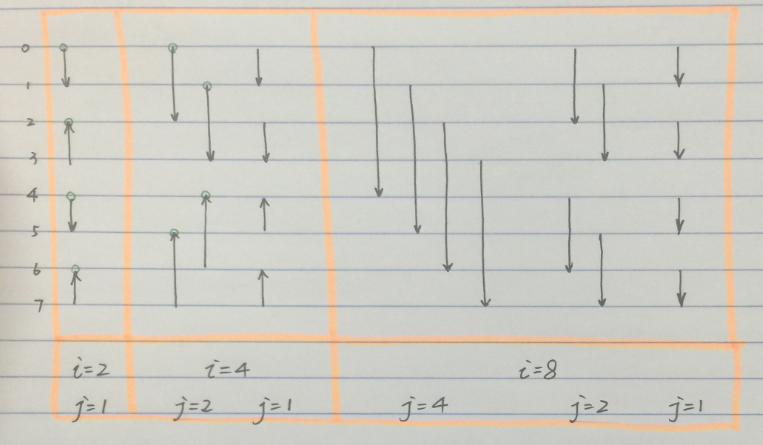 0
1
2
3
4
5
6
7
i=2 i=4 i=8
j=1 j=2 j=1 j=4 j=2 j=1